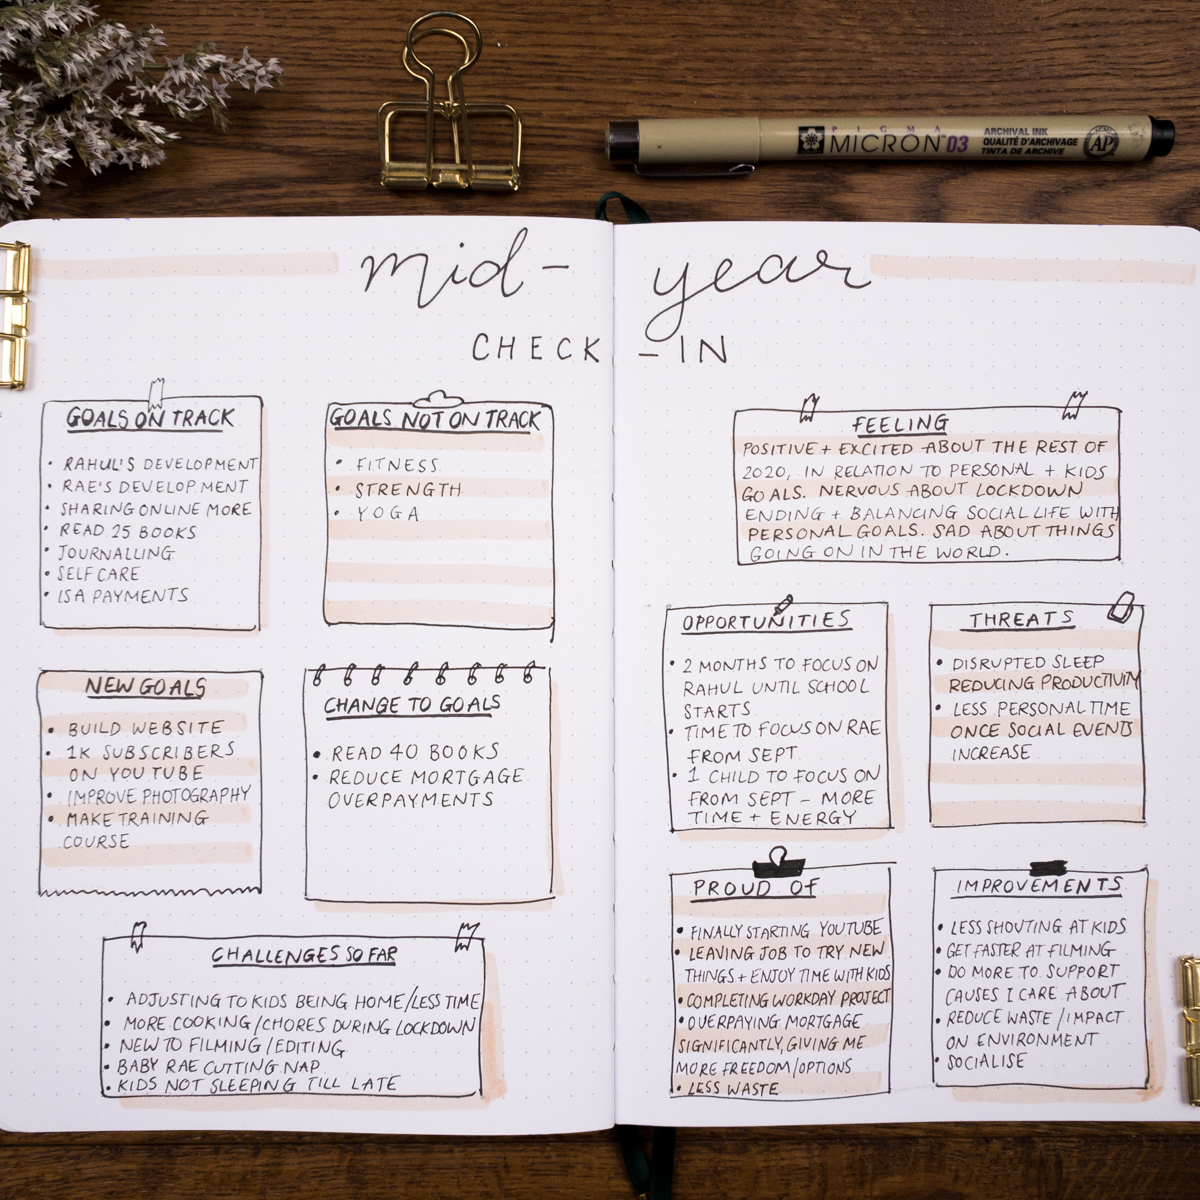 PIGMA
MICRON™ 03
ARCHIVAL INK
QUALITÉ D'ARCHIVAGE
TINTA DE ARCHIVE
AP
mid-year
CHECK-IN
GOALS ON TRACK
• RAHUL'S DEVELOPMENT
• RAE'S DEVELOPMENT
• SHARING ONLINE MORE
• READ 25 BOOKS
• JOURNALLING
• SELF CARE
• ISA PAYMENTS
GOALS NOT ON TRACK
• FITNESS
• STRENGTH
• YOGA
NEW GOALS
• BUILD WEBSITE
• 1K SUBSCRIBERS
ON YOUTUBE
• IMPROVE PHOTOGRAPHY
• MAKE TRAINING
COURSE
CHANGE TO GOALS
• READ 40 BOOKS
• REDUCE MORTGAGE
OVERPAYMENTS
CHALLENGES SO FAR
• ADJUSTING TO KIDS BEING HOME/LESS TIME
• MORE COOKING/CHORES DURING LOCKDOWN
• NEW TO FILMING/EDITING
• BABY RAE CUTTING NAP
• KIDS NOT SLEEPING TILL LATE
FEELING
POSITIVE + EXCITED ABOUT THE REST OF
2020, IN RELATION TO PERSONAL + KIDS
GOALS. NERVOUS ABOUT LOCKDOWN
ENDING + BALANCING SOCIAL LIFE WITH
PERSONAL GOALS. SAD ABOUT THINGS
GOING ON IN THE WORLD.
OPPORTUNITIES
• 2 MONTHS TO FOCUS ON
RAHUL UNTIL SCHOOL
STARTS
• TIME TO FOCUS ON RAE
FROM SEPT
• 1 CHILD TO FOCUS ON
FROM SEPT - MORE
TIME + ENERGY
THREATS
• DISRUPTED SLEEP
REDUCING PRODUCTIVITY
• LESS PERSONAL TIME
ONCE SOCIAL EVENTS
INCREASE
PROUD OF
• FINALLY STARTING YOUTUBE
• LEAVING JOB TO TRY NEW
THINGS + ENJOY TIME WITH KIDS
• COMPLETING WORKDAY PROJECT
• OVERPAYING MORTGAGE
SIGNIFICANTLY, GIVING ME
MORE FREEDOM/OPTIONS
• LESS WASTE
IMPROVEMENTS
• LESS SHOUTING AT KIDS
• GET FASTER AT FILMING
• DO MORE TO SUPPORT
CAUSES I CARE ABOUT
• REDUCE WASTE/IMPACT
ON ENVIRONMENT
• SOCIALISE